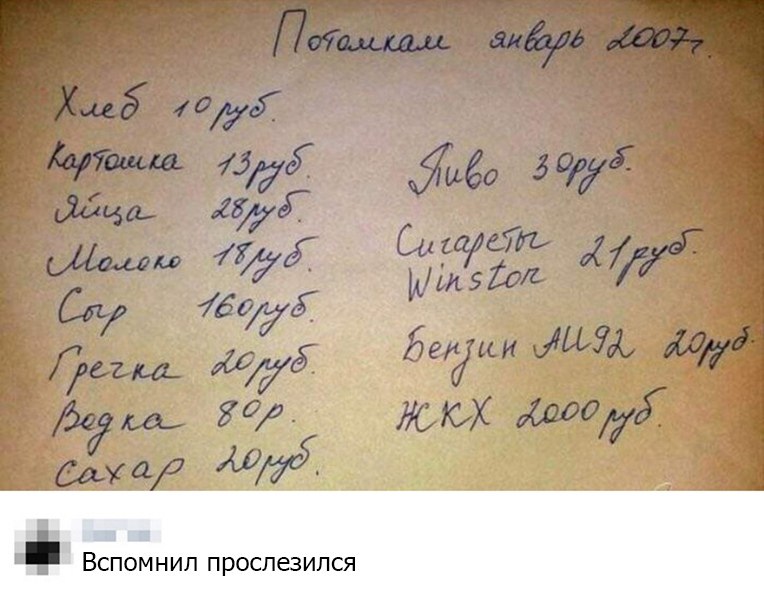 Потомкам январь 2007г.
Хлеб 10 руб.
Картошка 13руб.
Яйца 28руб.
Молоко 18руб.
Сыр 160руб.
Гречка 20руб.
Водка 80р.
Сахар 20руб.
Пиво 30руб.
Сигареты
Winston 21руб.
Бензин АИ92 20руб.
ЖКХ 2000руб.
Вспомнил прослезился